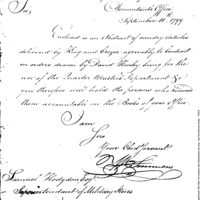 Sir,
Accountants Office
September 11. 1799
Enclosed is an Abstract of sundry articles
delivered by King and Crozer agreeably to Contract
on orders drawn by David Henley being for the
use of the Quarter Masters Department &
you therefore will hold the persons who received
them accountable in the Books of your Office.
I am
Sir
Your Obed Servant
Wm Simmons
Samuel Hodgdon Esqr
Superintendant of Military Stores